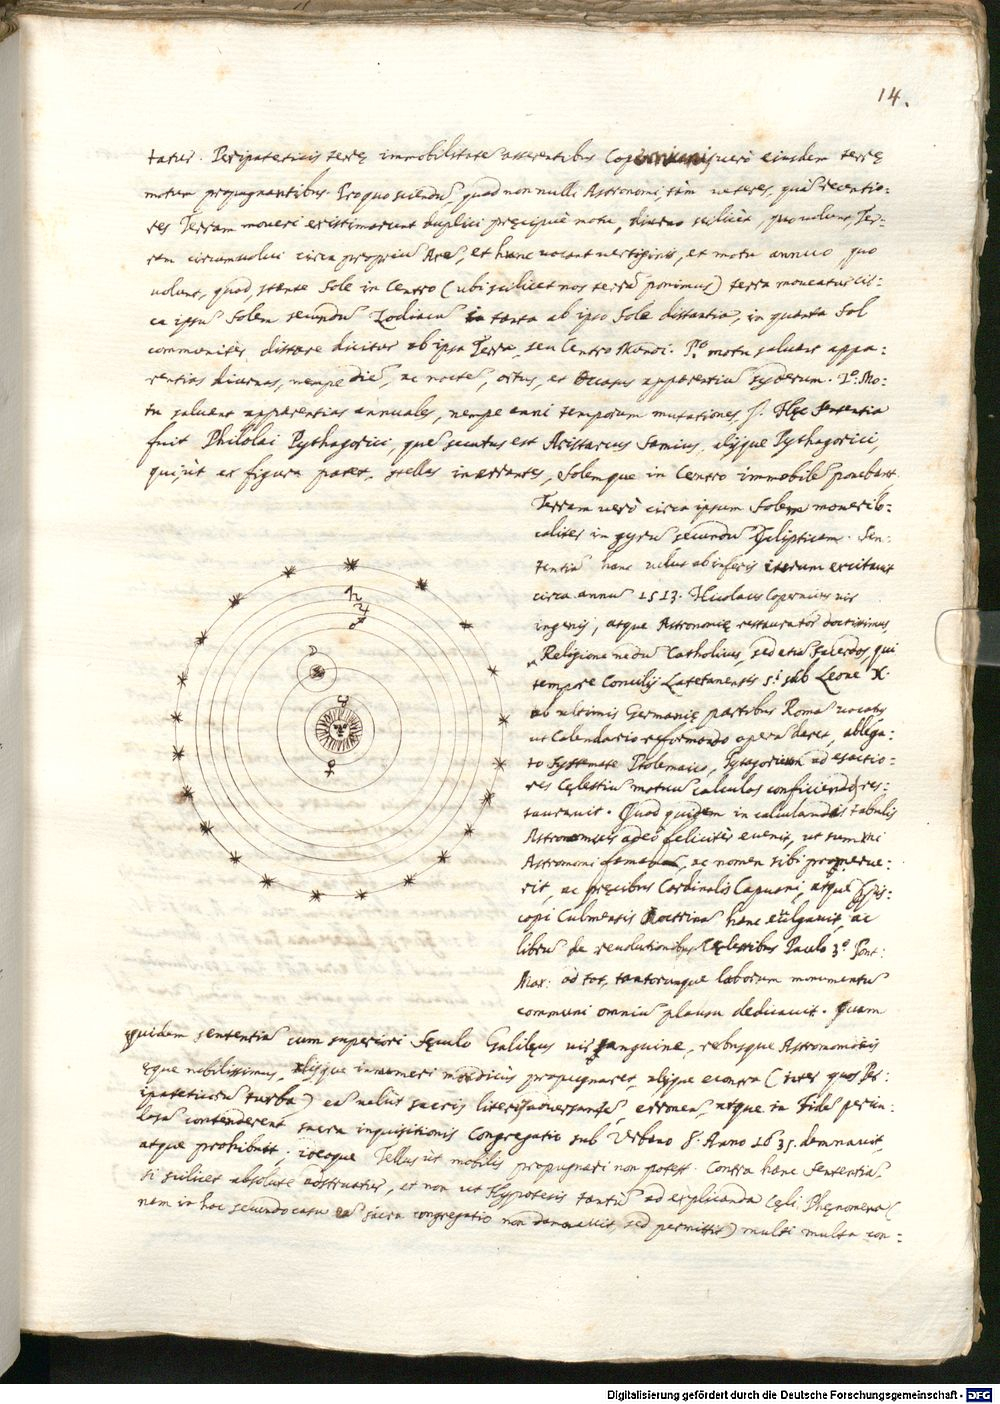 14.
tatur. Peripateticis terrę immobilitatē asserentibus Copernicanis verò eiusdem terrę
motum propugnantibus. Pro quo sciendū, quod non nulli Astronomi, tàm ueteres, quā recentio:
res Terram moueri existimarunt duplici pręcipuè motu, diurno scilicèt, quo uolunt, Ter:
ram circumuolui circa propriū Axē, et hunc uocant uertiginis, et motu annuo quo
uolunt, quod, stante Sole in Centro (ubi scilicet nos terrā ponimus) terra moueatur cir:
ca ipsū Solem secundū Zodiacū in tanta ab ipso Sole distantia, in quanta Sol
communitèr distare dicitur ab ipsa Terra, seu Centro Mundi. P.º motu saluant appa:
rentias diurnas, nempe diē, ac noctē, ortus, et Occasus apparentiū syderum. 2.º Mo:
tu saluant apparentias annuales, nempe anni temporum mutationes. Hęc Sententia
fuit Philolai Pythagorici, quē secutus est Aristarcus Samius, alijque Pythagorici,
qui, ùt ex figura patet, stellas inerrantes, Solemque in Centro immobilē ponebant.
Terram uerò circa ipsum Solem moueri lo:
calitèr in gyrū secundū Eclipticam. Sen:
tentiā hanc uelut ab inferis iterum excitauit
circa annū 1513. Nicolaus Copernicus uir
ingenij, atque Astronomię restaurator doctissimus,
Religione nedū Catholicus, sed etiā sacerdos, qui
tempore Concilij Lateranensis sub Leone X.
ab ultimis Germanię partibus Romā uocatus
ut Calendario reformando operā daret, ablega:
to Systemate Ptolemaico, Pytagoricum ad exactio:
res Cęlestiū motuū calculos conficiendos res:
taurauit. Quod quidem in calculandis tabulis
Astronomicis adeò felicitèr euenit, ut summi
Astronomi famam, ac nomen sibi promerue:
rit, ac pręcibus Cardinalis Capuani, atque Epis:
copi Culmensis Doctrinā hanc euulgauit, ac
librū de reuolutionibus Cęlestibus Paulo 3.º Pont:
Max: ad tot, tantorumque laborum monumentū
communi omniū plausu dedicauit. Quam
quidem sententiā cum superiori Sęculo Galilęus uir sanguine, rebusque Astronomicis
ęque nobilissimus, alijque innumeri mordicùs propugnaret, alijque econtra (inter quos Per:
ipateticorū turba) eā uelùt sacris literis aduersantē, erroneā, atque in Fide pericu:
losā contenderent sacra inquisitionis Congregatio sub Urbano 8.º Anno 1635. damnauit,
atque prohibuit; ideoque Tellus ùt mobilis propugnari non potest. Contra hanc Sententiā
si scilicet absolutè astruatur, et non ut Hypotesis tantū ad explicanda Cęli Phęnomena (
nam in hoc secundo casu eā sacra congregatio non damnauit, sed permittit) multi multa con:
Digitalisierung gefördert durch die Deutsche Forschungsgemeinschaft - DFG